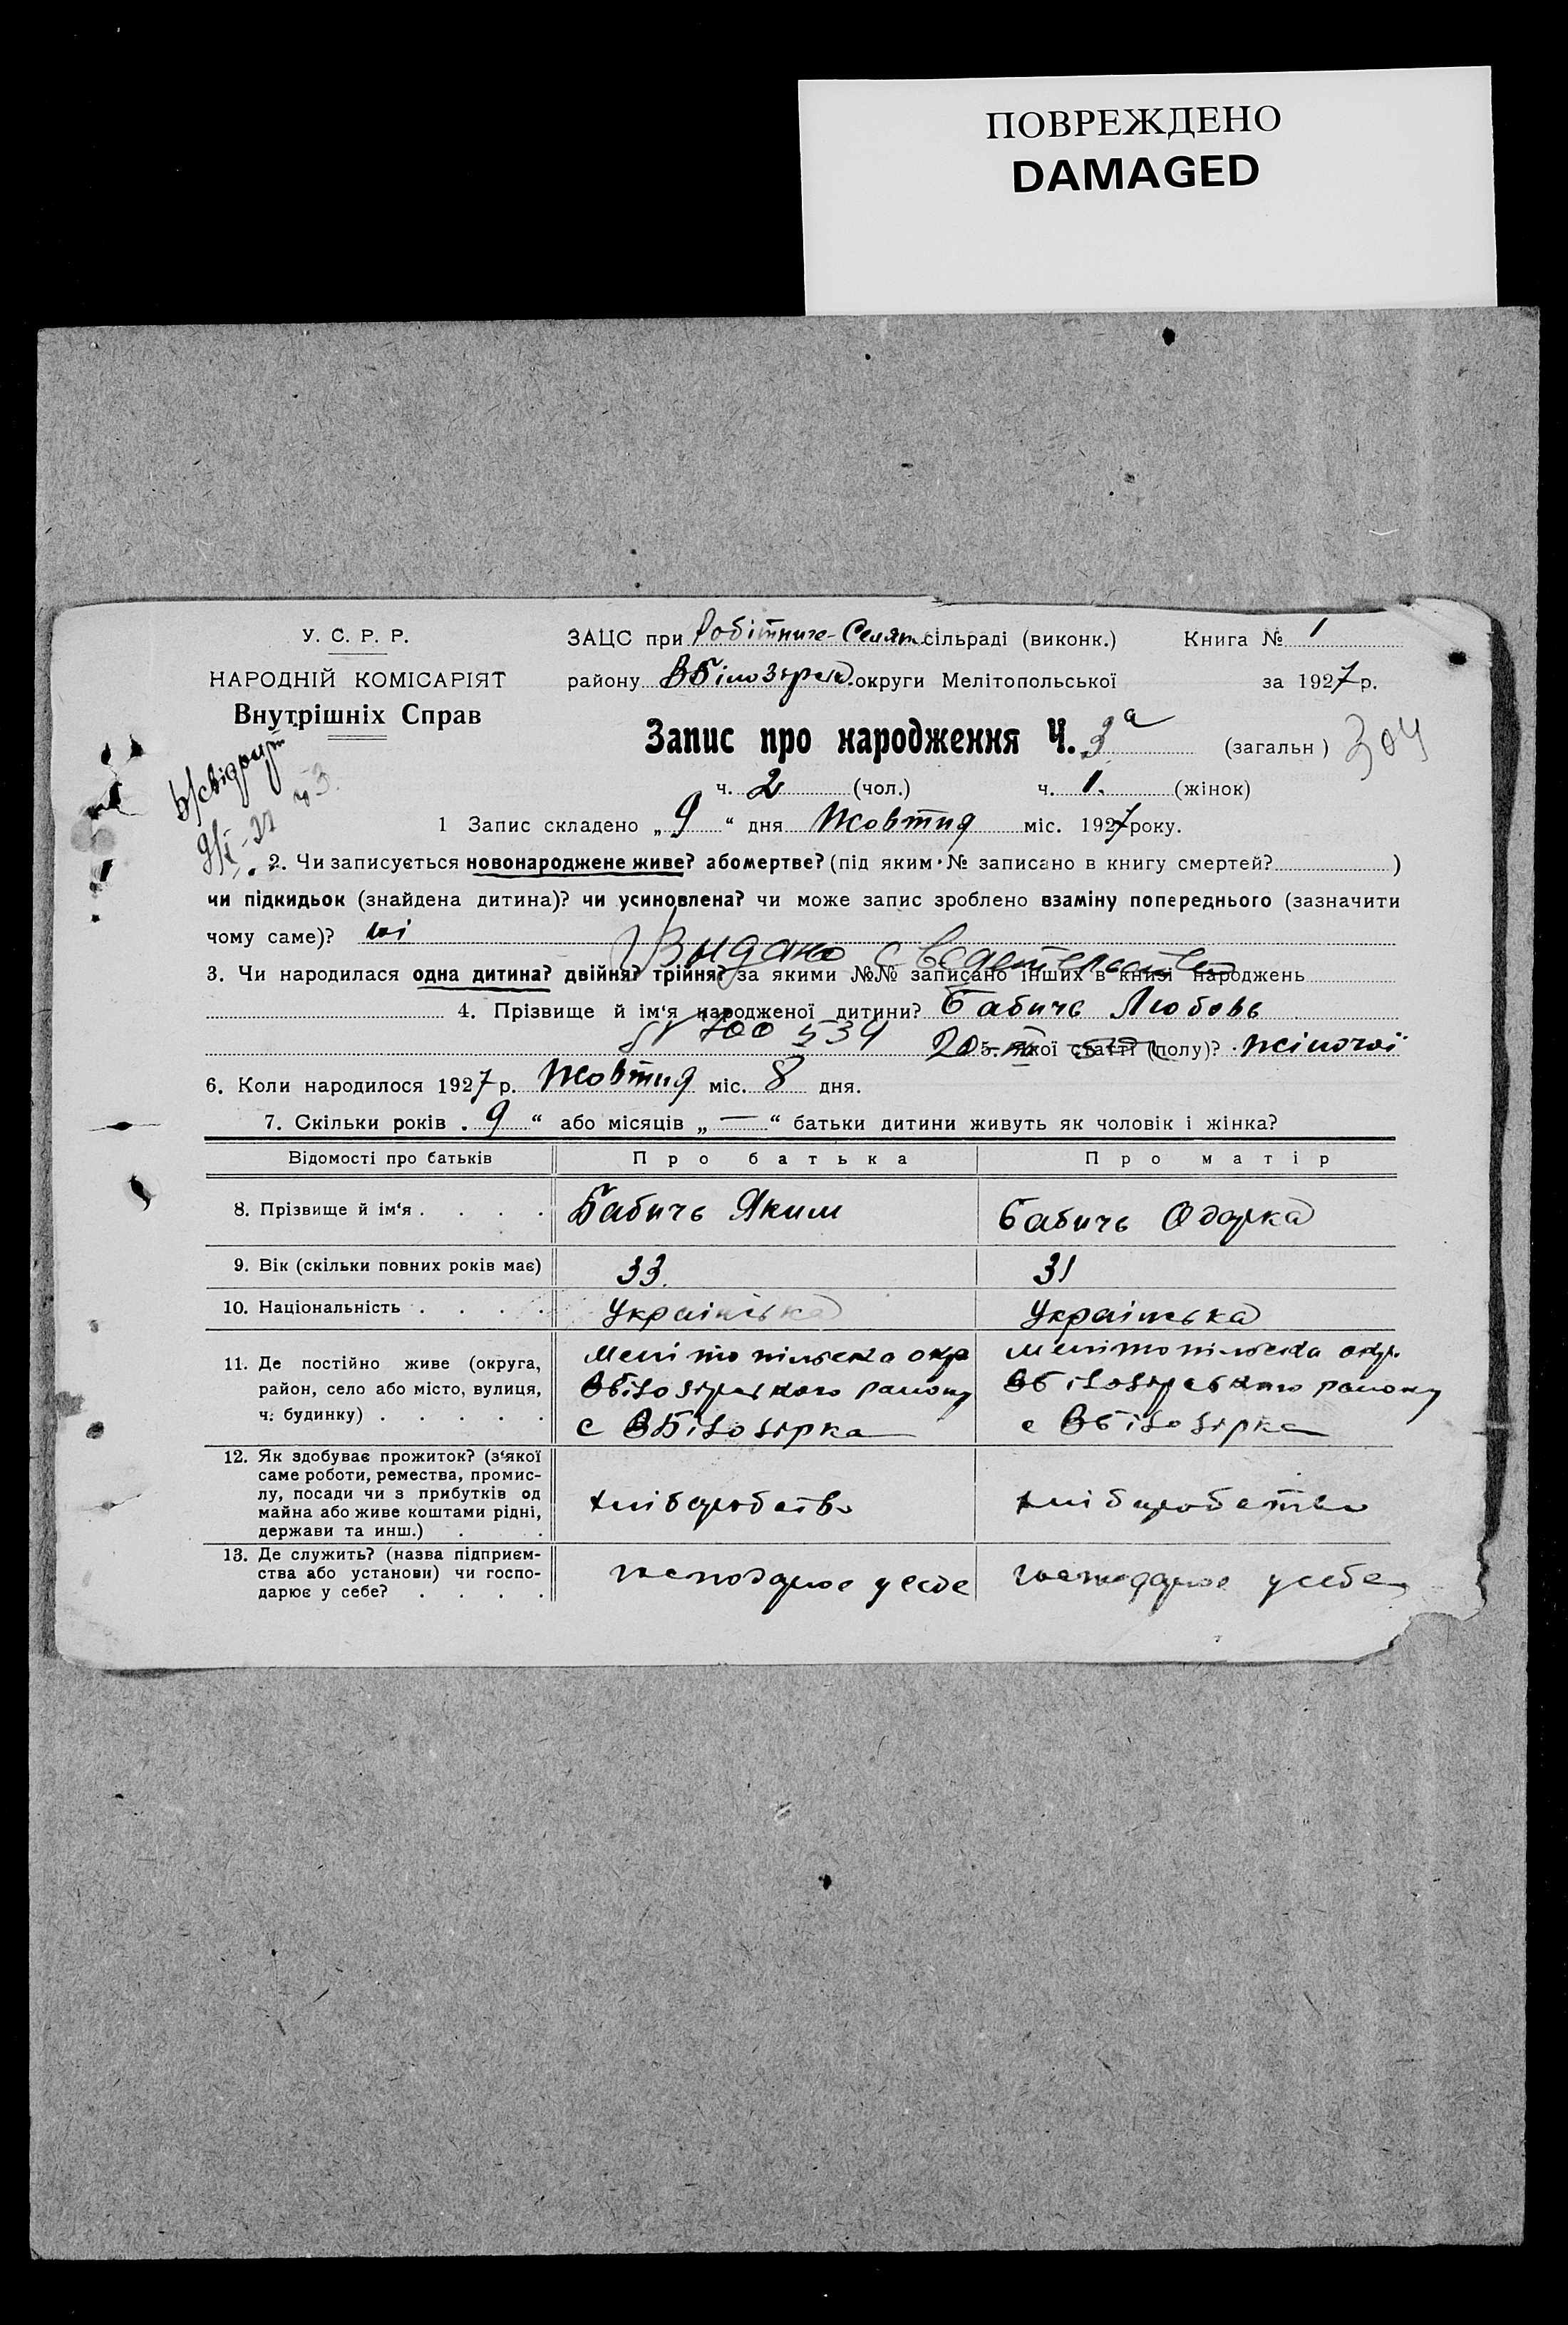 ПОВРЕЖДЕНО
DAMAGED
У. С. Р. Р.
НАРОДНІЙ КОМІСАРІЯТ
Внутрішніх Справ
ЗАЦС при Робітниче-Селян. сільраді (виконк.) Книга № 1
району ВБілозірськ. округи Мелітопольської за 1927 р.
Запис про народження Ч. 3а (загальн) 304
ч. 2 (чол.) ч. 1. (жінок)
1 Запис складено „ 9 “ дня Жовтня міс. 1927 року.
2. Чи записується новонароджене живе? або мертве? (під яким № записано в книгу смертей? )
чи підкидьок (знайдена дитина)? чи усиновлена? чи може запис зроблено взаміну попереднього (зазначити
чому саме)? ні
Выдано сведетельство
3. Чи народилася одна дитина? двійня? трійня? за якими №№ записано інших в книзі народжень
4. Прізвище й ім‘я народженої дитини? Бабичь Любовь
№ 700 534
5. якої статті (полу)? жіночої
6. Коли народилося 1927 р. Жовтня міс. 8 дня.
7. Скільки років „ 9 “ або місяців „ — “ батьки дитини живуть як чоловік і жінка?
Відомості про батьків Про батька Про матір
8. Прізвище й ім‘я . . . . Бабичь Яким Бабичь Одарка
9. Вік (скільки повних років має) 33. 31
10. Національність . . . . Українська Українська
11. Де постійно живе (округа, Мелітопільска окр Мелітопільська окр.
район, село або місто, вулиця, Вбілозірського району Вбілозірського району
ч. будинку) . . . . . с ВБілозірка с Вбілозірка
12. Як здобуває прожиток? (з‘якої
саме роботи, ремества, промис-
лу, посади чи з прибутків од хліборобство хліборобство
майна або живе коштами рідні,
держави та инш.) . .
13. Де служить? (назва підприєм-
ства або установи) чи госпо- господарює у себе господарює у себе
дарює у себе? . . . .